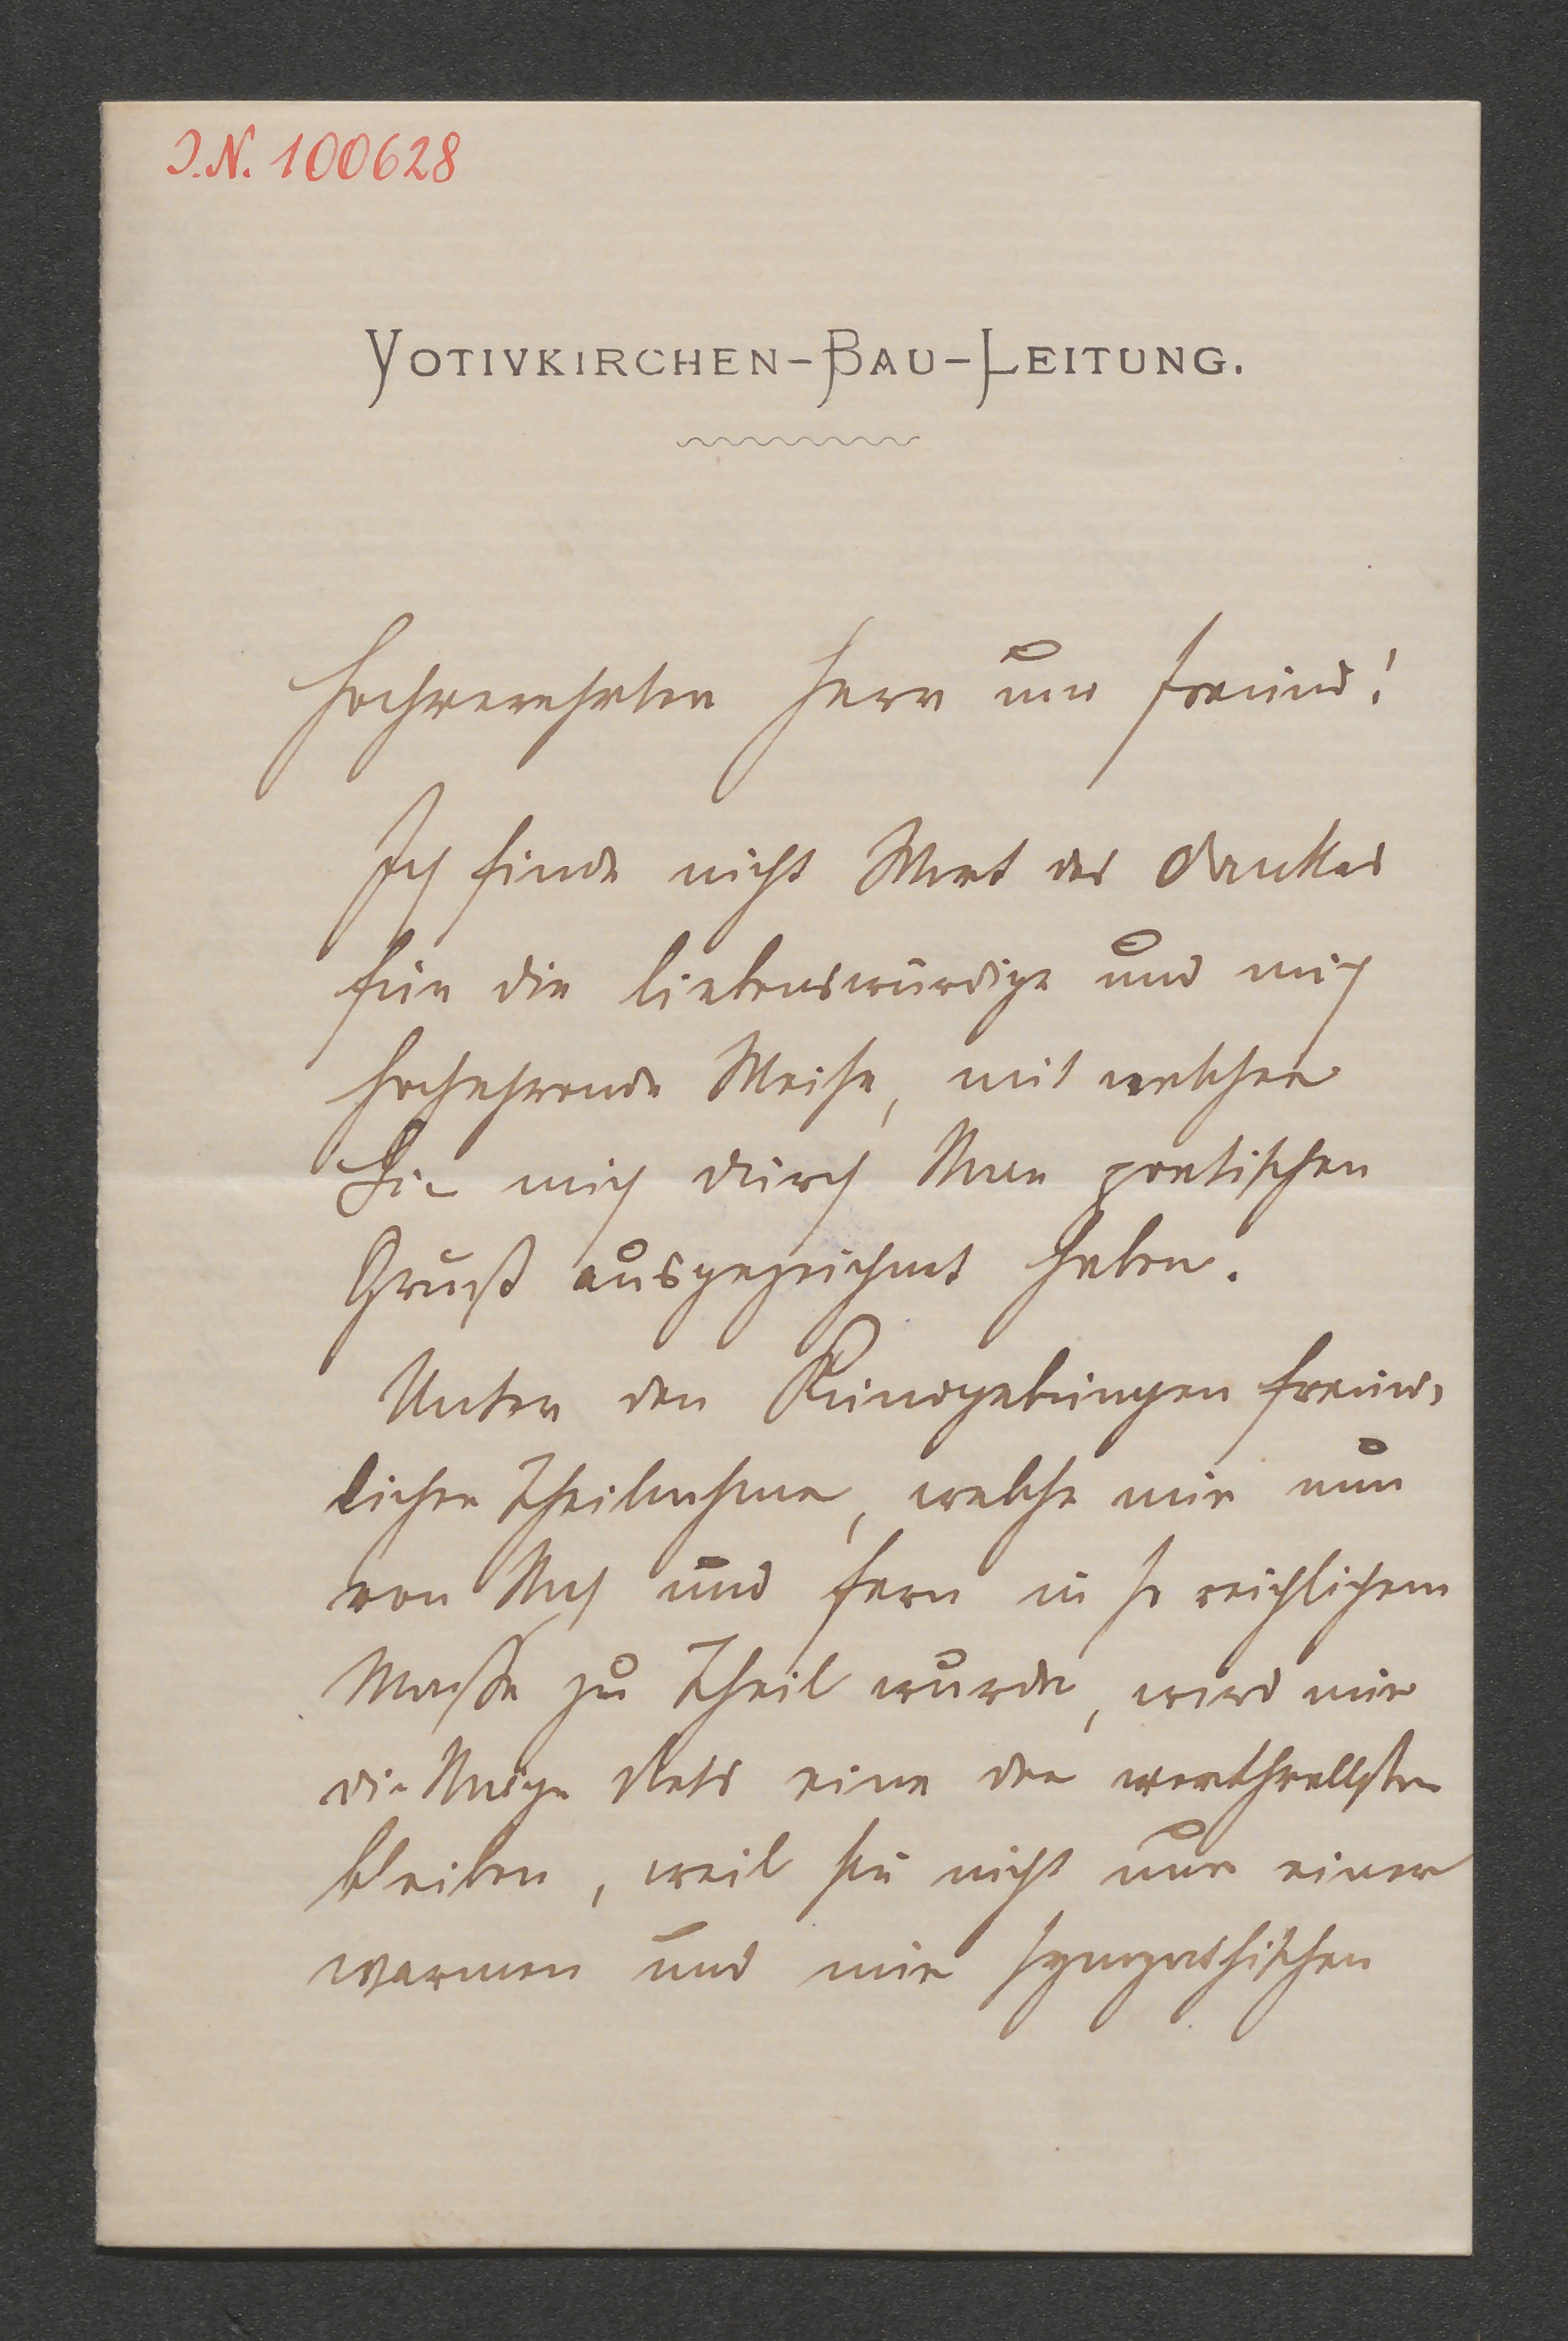 J.N. 100628
VOTIVKIRCHEN-BAU-LEITUNG.
Hochverehrter Herr und Freund!
Ich finde nicht Wort des Dankes
für die liebenswürdige und mich
hochehrende Weise, mit welcher
Sie mich durch Ihren poetischen
Gruß ausgezeichnet haben.
Unter den Kundgebungen freund-
licher Theilnahme, welche mir nun
von Nah und Fern in so reichlichem
Maße zu Theil wurde, wird mir
die Ihrige stets eine der werthvollsten
bleiben, weil sie nicht nur einer
warmen und mir sympathischen